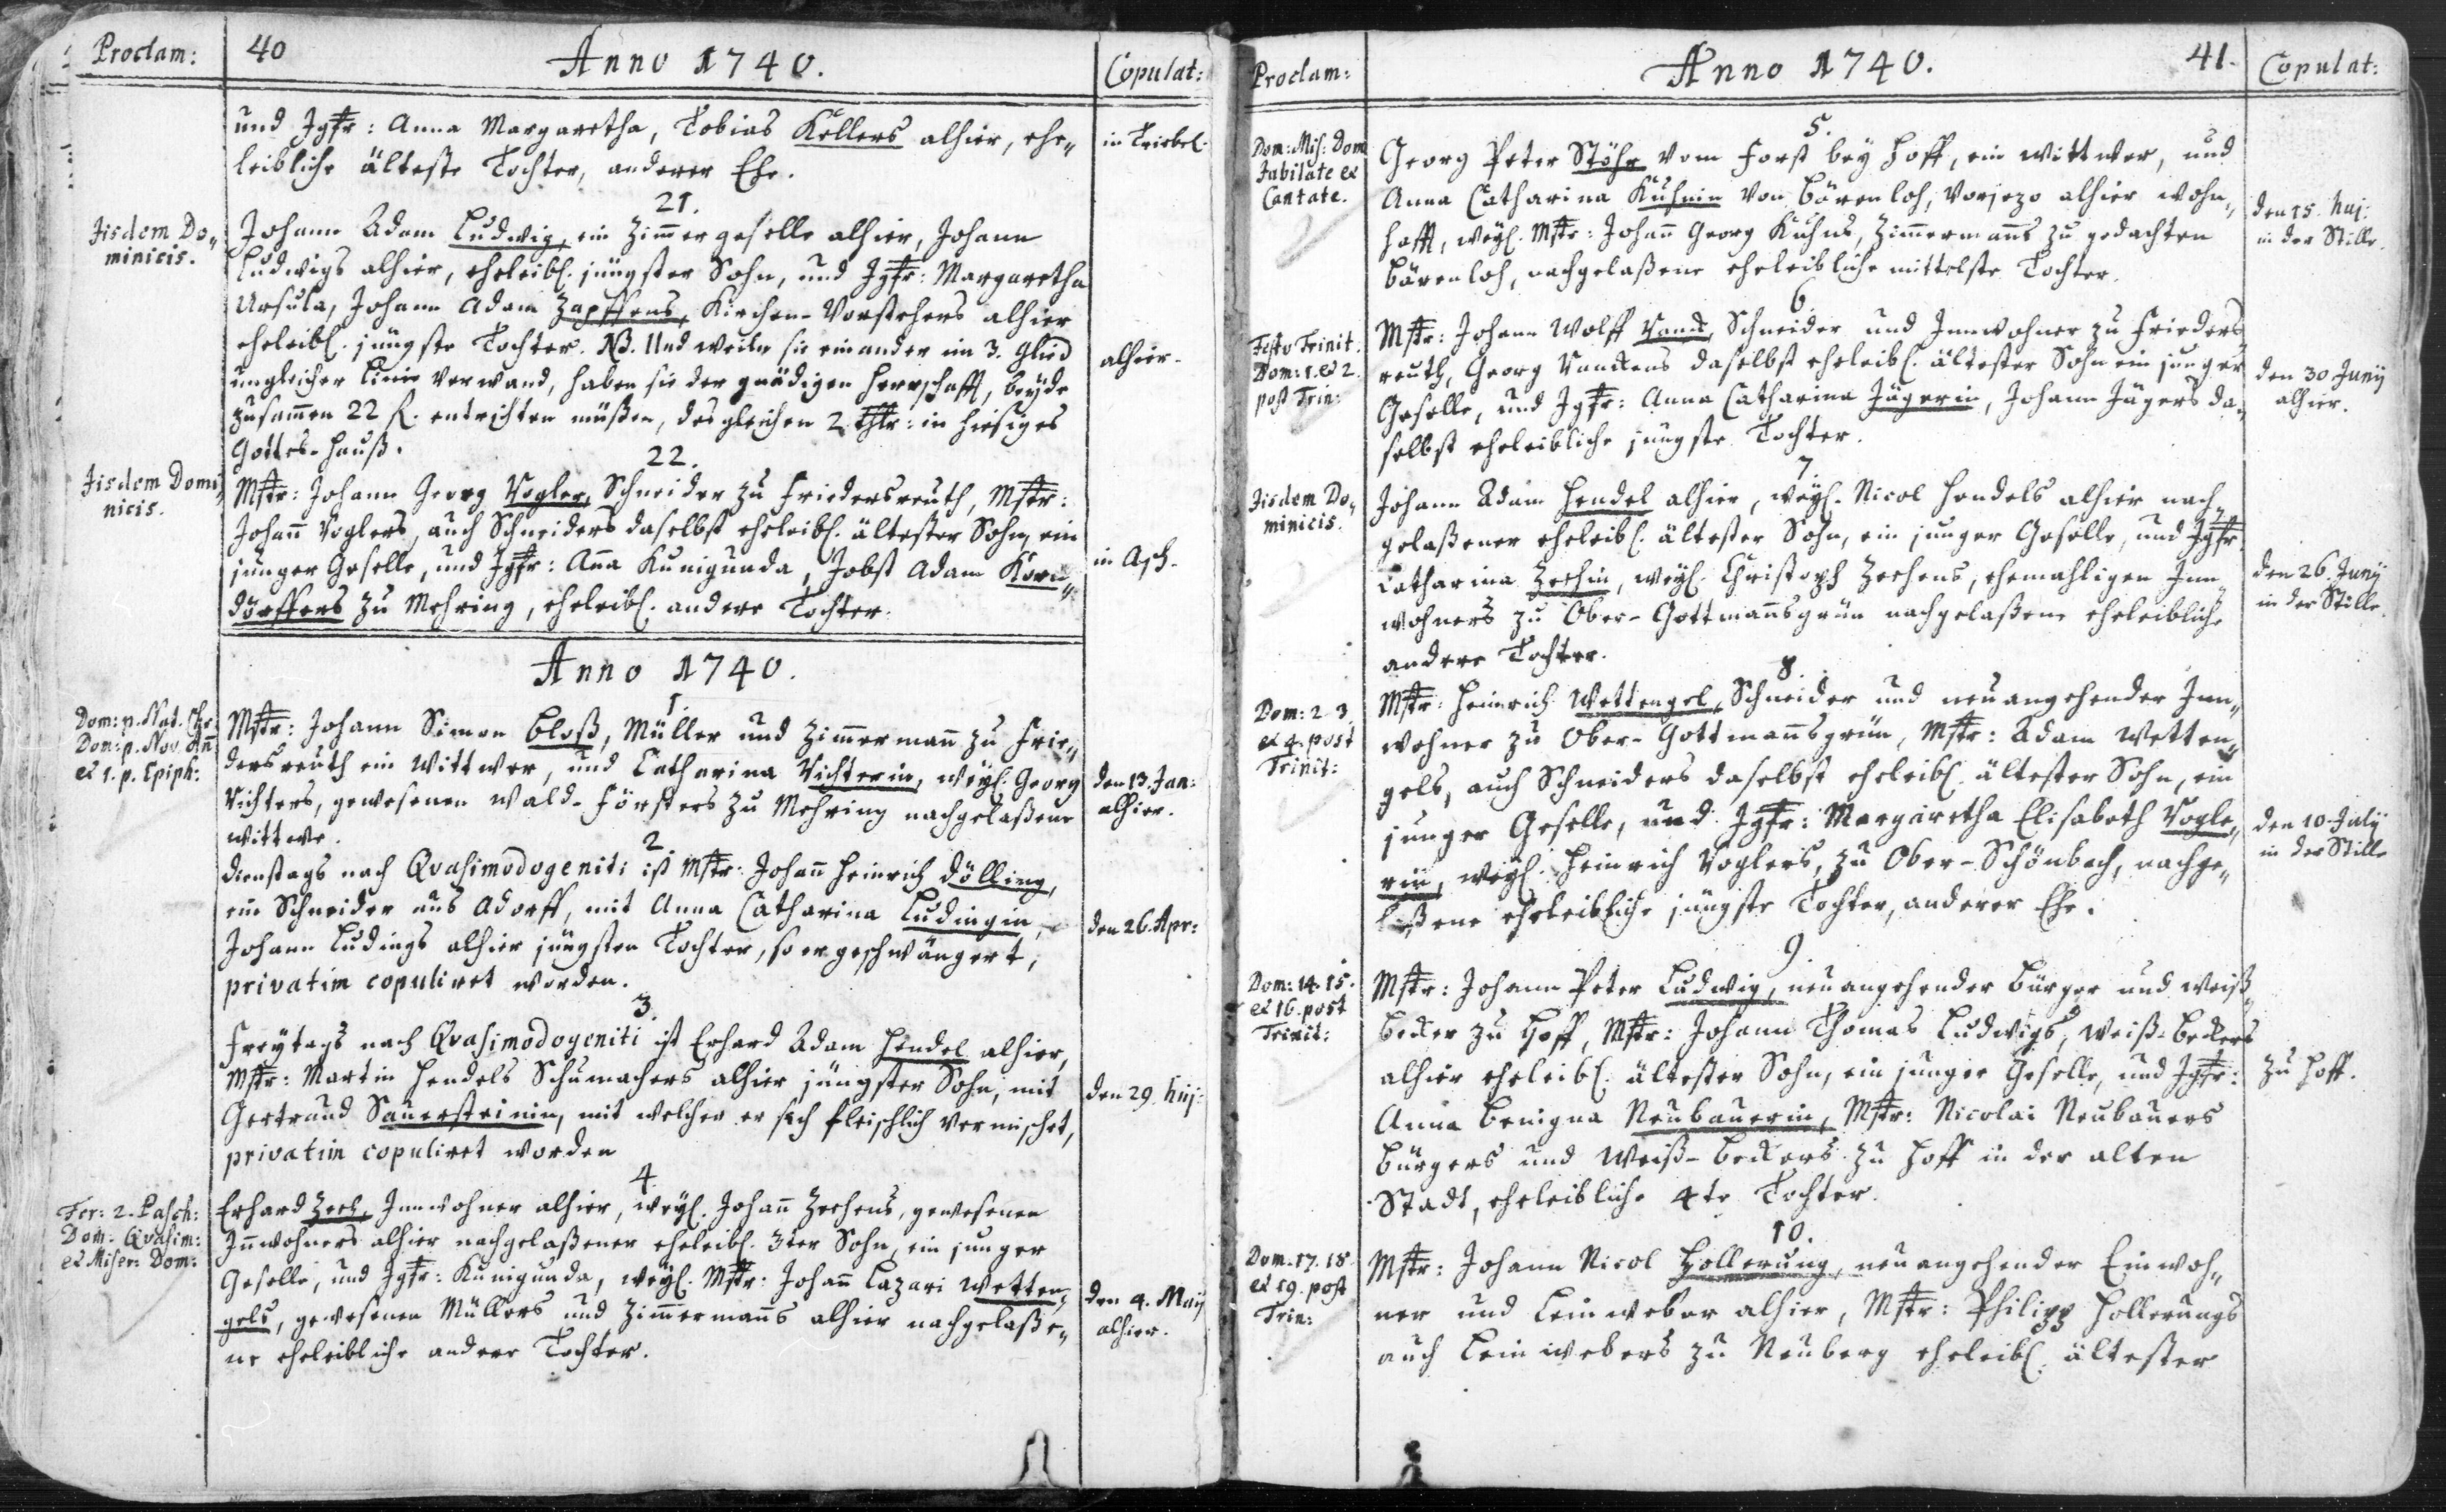 Proclam: 40 Anno 1740. Copulat:
und Jgfr: Anna Margaretha, Tobias Kellers alhier, ehe„
in Triebel.
leibliche älteste Tochter, anderer Ehe.
21.
Jisdem Do„
minicis.
Johann Adam Ludwig, ein Zimmergeselle alhier, Johann
Ludwigs alhier, eheleibl. jüngster Sohn, und Jgfr: Margaretha
Ursula, Johann Adam Zapffens, Kirchen-Vorstehers alhier
eheleibl. jüngste Tochter. NB. Und weiln sie einander im 3. Glied
alhier.
ungleicher Linie verwand, haben sie der gnädigen Herrschafft, beyde
zusamen 22 fl. entrichten müßen, desgleichen 2 Thlr: in hiesiges
Gottes-Hauß.
22.
Jisdem Domi„
nicis.
Mstr: Johann Georg Vogler, Schneider zu Friedersreuth, Mstr:
Johañ Voglers, auch Schneiders daselbst eheleibl. ältester Sohn, ein
junger Geselle, und Jgfr: Aña Kunigunda, Jobst Adam Korn„
in Asch.
dörffers zu Mehring, eheleibl. andere Tochter.
Anno 1740.
1.
Dom: p. Nat. Chr.
Dom: p. Nov. Añ
et 1. p. Epiph:
Mstr: Johann Simon Bloß, Müller und Zimmermañ zu Frie„
dersreuth ein Wittwer, und Catharina Richterin, weyl. Georg
Richters, gewesenen Wald-Försters zu Mehring nachgelaßene
Wittwe.
den 13. Jan:
alhier.
2.
Dienstags nach Qvasimodogeniti ist Mstr: Johañ Heinrich Dölling,
ein Schneider aus Adorff, mit Anna Catharina Ludingin,
Johann Ludings alhier jüngsten Tochter, so er geschwängert,
privatim copuliret worden.
den 26. Apr:
3.
Freytags nach Qvasimodogeniti ist Erhard Adam Hendel alhier,
Mstr: Martin Hendels Schumachers alhier jüngster Sohn, mit
Gertraud Sauersteinin, mit welcher er sich fleischlich vermischet,
privatim copuliret worden
den 29. huj:
4.
Fer: 2. Pasch:
Dom: Qvasim:
et Miser: Dom:
Erhard Zech, Innwohner alhier, weyl. Johañ Zechens, gewesenen
Iñwohners alhier nachgelaßener eheleibl. 3ter Sohn, ein junger
Geselle, und Jgfr: Kunigunda, weyl. Mstr: Johañ Lazari Wetten„
gels, gewesenen Müllers und Zimmermañs alhier nachgelaße„
ne eheleibliche andere Tochter.
den 4. Maij
alhier.
Proclam: Anno 1740. 41. Copulat:
5.
Dom: Mis: Dom
Jubilate et
Cantate.
Georg Peter Stöhr vom Forst bey Hoff, ein Wittwer, und
Anna Catharina Kuhnin von Bärenloh, vorjezo alhier wohn„
hafft, weyl. Mstr: Johañ Georg Kuhns, Zimmermañs zu gedachten
Bärenloh, nachgelaßene eheleibliche mittelste Tochter.
den 15. huj:
in der Stille.
6.
Festo Trinit.
Dom: 1. et 2.
post Trin:
Mstr: Johann Wolff Sand, Schneider und Innwohner zu Frieders„
reuth, Georg daselbst eheleibl. ältester Sohn ein junger
Geselle, und Jgfr: Anna Catharina Jägerin, Johann Jägers da„
selbst eheleibliche jüngste Tochter.
den 30 Junij
alhier.
7.
Jisdem Do„
minicis.
Johann Adam Hendel alhier, weyl. Nicol Hendels alhier nach„
gelaßener eheleibl. ältester Sohn, ein junger Geselle, und Jgfr
Catharina Zechin, weyl. Christoph Zechens, ehemahligen Inn„
wohners zu Ober-Gottmañsgrün nachgelaßene eheleibliche
andere Tochter.
den 26. Junij
in der Stille.
8.
Dom: 2. 3.
et 4. post
Trinit:
Mstr: Heinrich Wettengel, Schneider und neuangehender Inn„
wohner zu Ober-Gottmañsgrün, Mstr: Adam Wetten„
gels, auch Schneiders daselbst eheleibl. ältester Sohn, ein
junger Geselle, und Jgfr: Margaretha Elisabeth Vogle„
rin, weyl. Heinrich Voglers, zu Ober-Schönbach, nachge„
laßene eheleibliche jüngste Tochter, anderer Ehe.
den 10. July
in der Stille
9.
Dom: 14. 15.
et 16. post
Trinit:
Mstr: Johann Peter Ludwig, neuangehender Bürger und Weiß„
becker zu Hoff, Mstr: Johann Thomas Ludwigs, Weiß-Beckers
alhier eheleibl. ältester Sohn, ein junger Geselle, und Jgfr:
Anna Benigna Neubauerin, Mstr: Nicolai Neubauers
Bürgers und Weiß-Beckers zu Hoff in der alten
Stadt, eheleibliche 4te Tochter.
zu Hoff.
10.
Dom. 17. 18
et 19. post
Trin:
Mstr: Johann Nicol Hollerung, neuangehender Einwoh„
ner und Leinweber alhier, Mstr: Philipp Hollerungs
auch Leinwebers zu Neuberg eheleibl. ältester